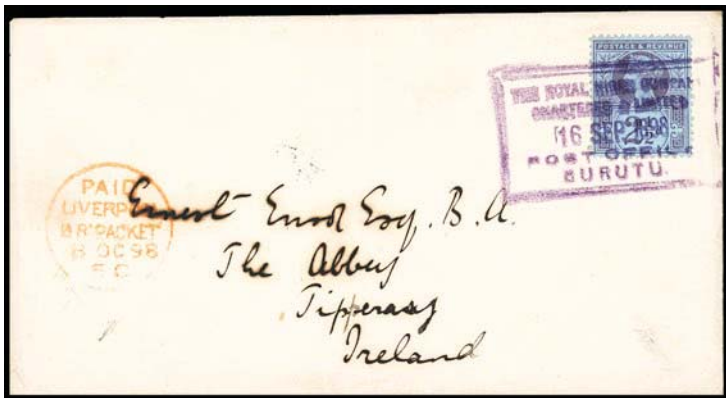 POSTAGE & REVENUE
THE ROYAL NIGER COMPANY
CHARTERED & LIMITED
16 SEP 1898
POST OFFICE
BURUTU.
2½
PAID
LIVERPOOL
BR PACKET
8 OC 98
Ernest Esq. B.A.
The Abbey
Tipperary
Ireland